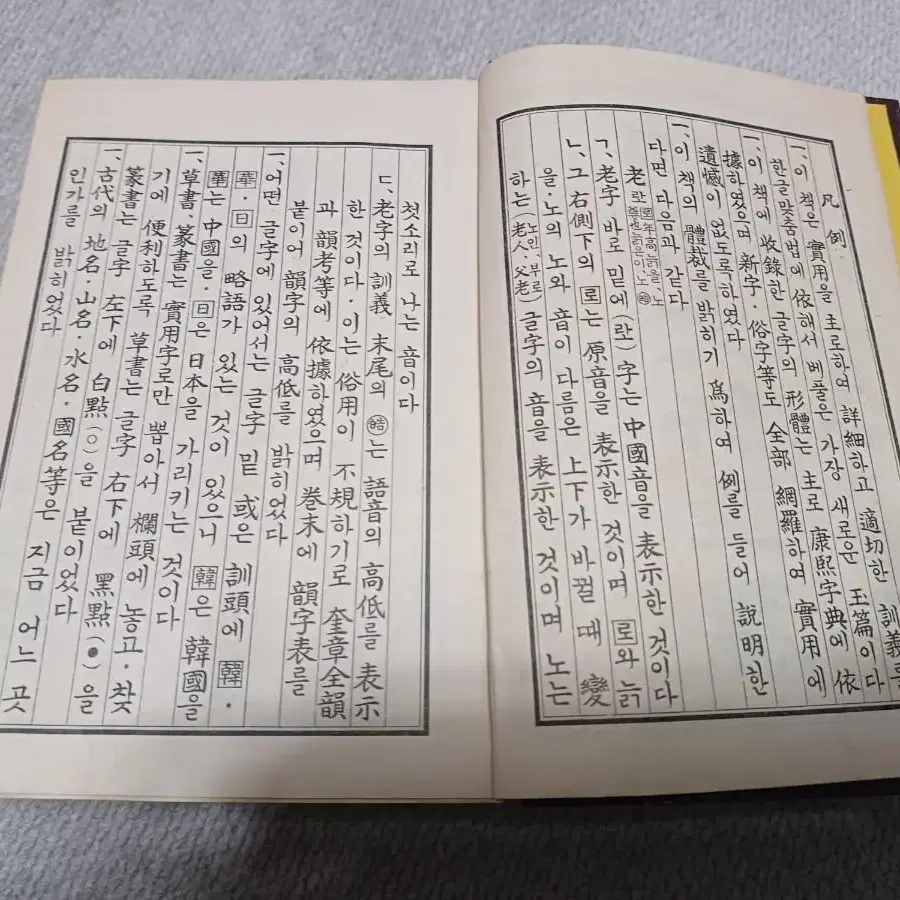 凡例.
一、이 책은 實用을 主로하여 詳細하고 適切한 訓義를
한글맞춤법에 依해서 베풀은 가장 새로운 玉篇이다
一、이 책에 收錄한 글자의 形體는 主로 康熙字典에 依
據하였으며 新字·俗字等도 全部 網羅하여 實用에
遺憾이 없도록하였다
一、이 책의 體裁를 밝히기 爲하여 例를 들어 說明한
다면 다음과 같다
老 란 로 年高늙을、노 尊也늙은이、노 皓
ㄱ、老字 바로 밑에(란)字는 中國音을 表示한 것이다
ㄴ、그 右側下의 로는 原音을 表示한 것이며 로와 늙
을·노의 노와 音이 다름은 上下가 바뀔 때 變
하는(老人、父老 노인、부로) 글자의 音을 表示한 것이며 노는
첫소리로 나는 音이다
ㄷ、老字의 訓義 末尾의 皓는 語音의 高低를 表示
한 것이다·이는 俗用이 不規하기로 奎章全韻
과 韻考等에 依據하였으며 卷末에 韻字表를
붙이어 韻字의 高低를 밝히었다
一、어떤 글자에 있어서는 글자 밑 或은 訓頭에 韓·
華·日의 略語가 있는 것이 있으니 韓은 韓國을
華는 中國을·日은 日本을 가리키는 것이다
一、草書、篆書는 實用字로만 뽑아서 欄頭에 놓고·찾
기에 便利하도록 草書는 글자 右下에 黑點(●)을
篆書는 글자 左下에 白點(○)을 붙이었다
一、古代의 地名·山名·水名·國名等은 지금 어느 곳
인가를 밝히었다